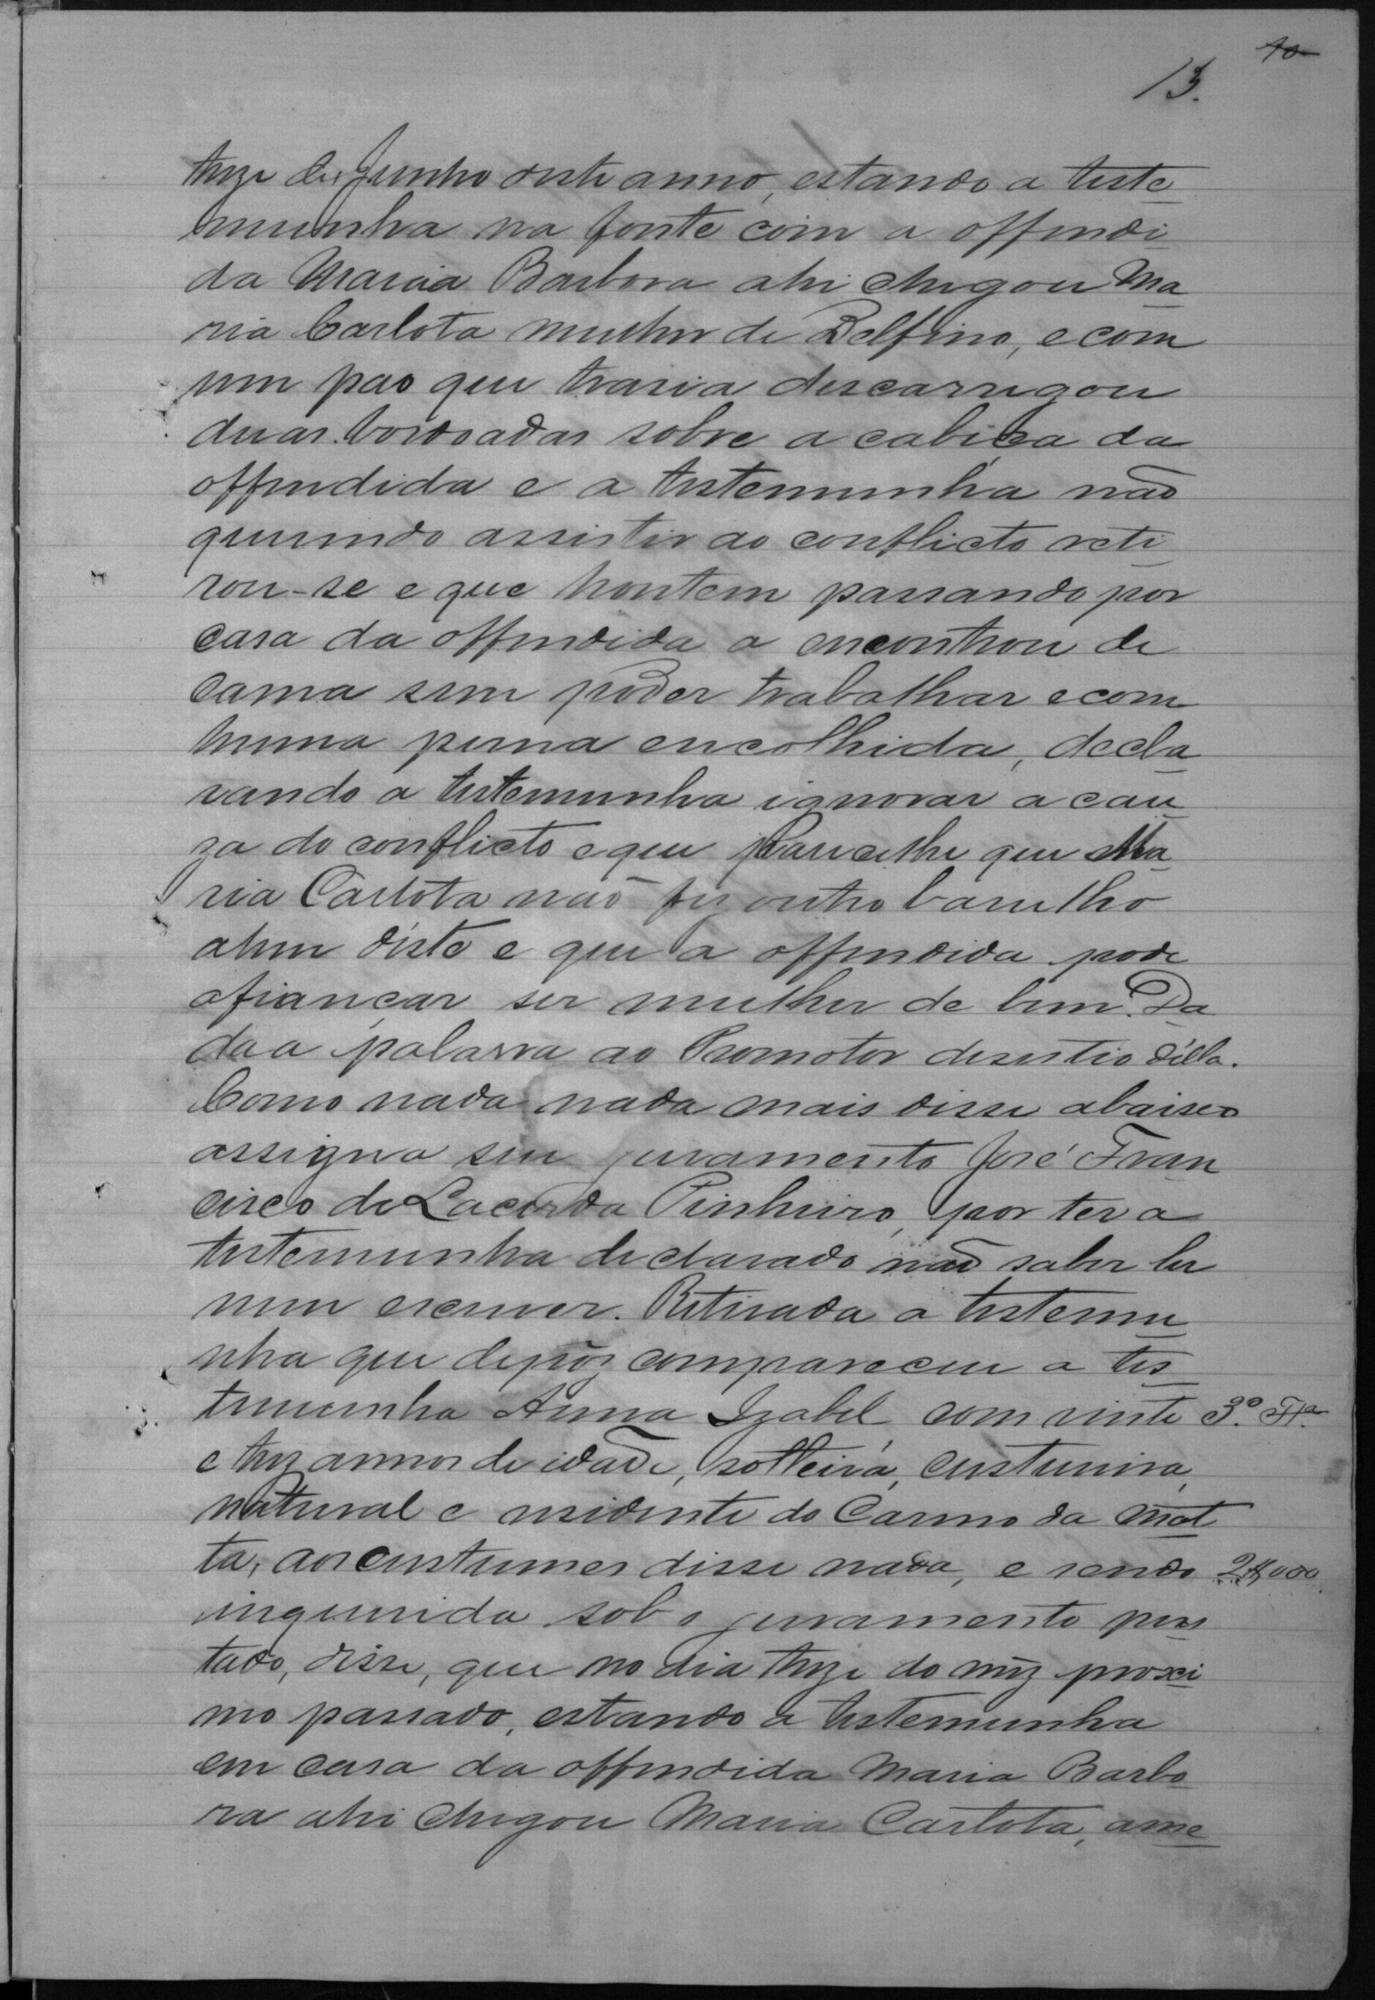 10
13.
treze de Junho deste anno, estando a teste
munha na fonte com a offendi
da Maria Barbora ahi chegou Ma
ria Carlota mulher de Delfino, e com
um pao que trasia descarregou
duas bordoadas sobre a cabeça da
offendida e a testemunha não
querendo assistir ao conflicto reti
rou-se e que hontem passando por
casa da offendida a encontrou de
cama sem poder trabalhar e com
huma perna encolhida, decla
rando a testemunha ignorar a cau
za do conflicto e que parece lhe que Ma
ria Carlota não fez outro barulho
alem d'este e que a offendida pode
afiançar ser mulher de bem. Da
da a palavra ao Promotor desestio d'ella.
Como nada nada mais disse abaixo
assigna seu juramento José Fran
cisco de Lacerda Pinheiro, por ter a
testemunha declarado não saber ler
nem escrever. Retirada a testemu
nha que depôz compareceu a tes
temunha Anna Izabel com vinte 3ª Tª
e trez annos de idade, solteira, custureira,
natural e residente do Carmo da Mat
ta, aos custumes disse nada, e sendo 2$000
inquerida sob o juramento pres
tado, disse, que no dia treze do mez proxi
mo passado, estando a testemunha
em casa da offendida Maria Barbo
ra ahi chegou Maria Carlota, ame